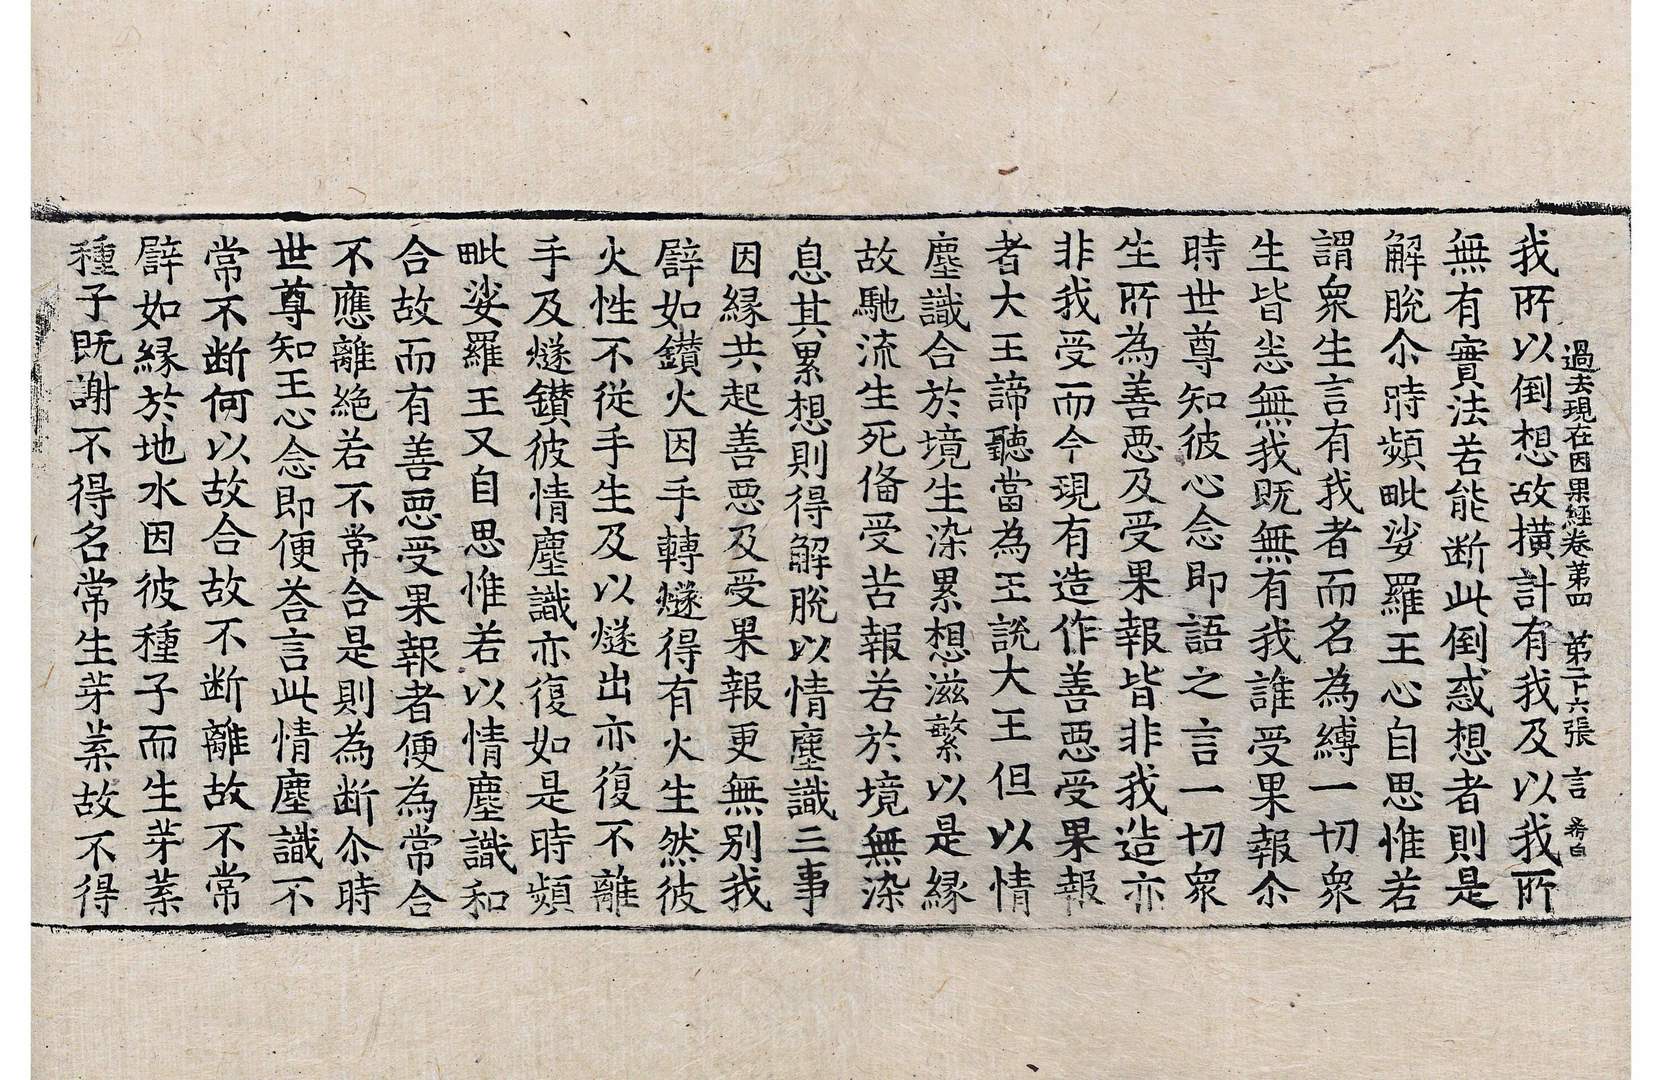 過去現在因果經卷第四 第二十六張 言 希白
我所以倒想故橫計有我及以我所
無有實法若能断此倒惑想者則是
解脫尒時頻毗娑羅王心自思惟若
謂衆生言有我者而名為縛一切衆
生皆悉無我既無有我誰受果報尒
時世尊知彼心念即語之言一切衆
生所為善惡及受果報皆非我造亦
非我受而今現有造作善惡受果報
者大王諦聽當為王說大王但以情
塵識合於境生染累想滋繁以是緣
故馳流生死俻受苦報若於境無染
息其累想則得解脫以情塵識三事
因緣共起善惡及受果報更無別我
譬如鑚火因手轉燧得有火生然彼
火性不從手生及以燧出亦復不離
手及燧鑚彼情塵識亦復如是時頻
毗娑羅王又自思惟若以情塵識和
合故而有善惡受果報者便為常合
不應離絶若不常合是則為断尒時
世尊知王心念即便荅言此情塵識不
常不断何以故合故不断離故不常
譬如緣於地水因彼種子而生芽葉
種子既謝不得名常生芽葉故不得